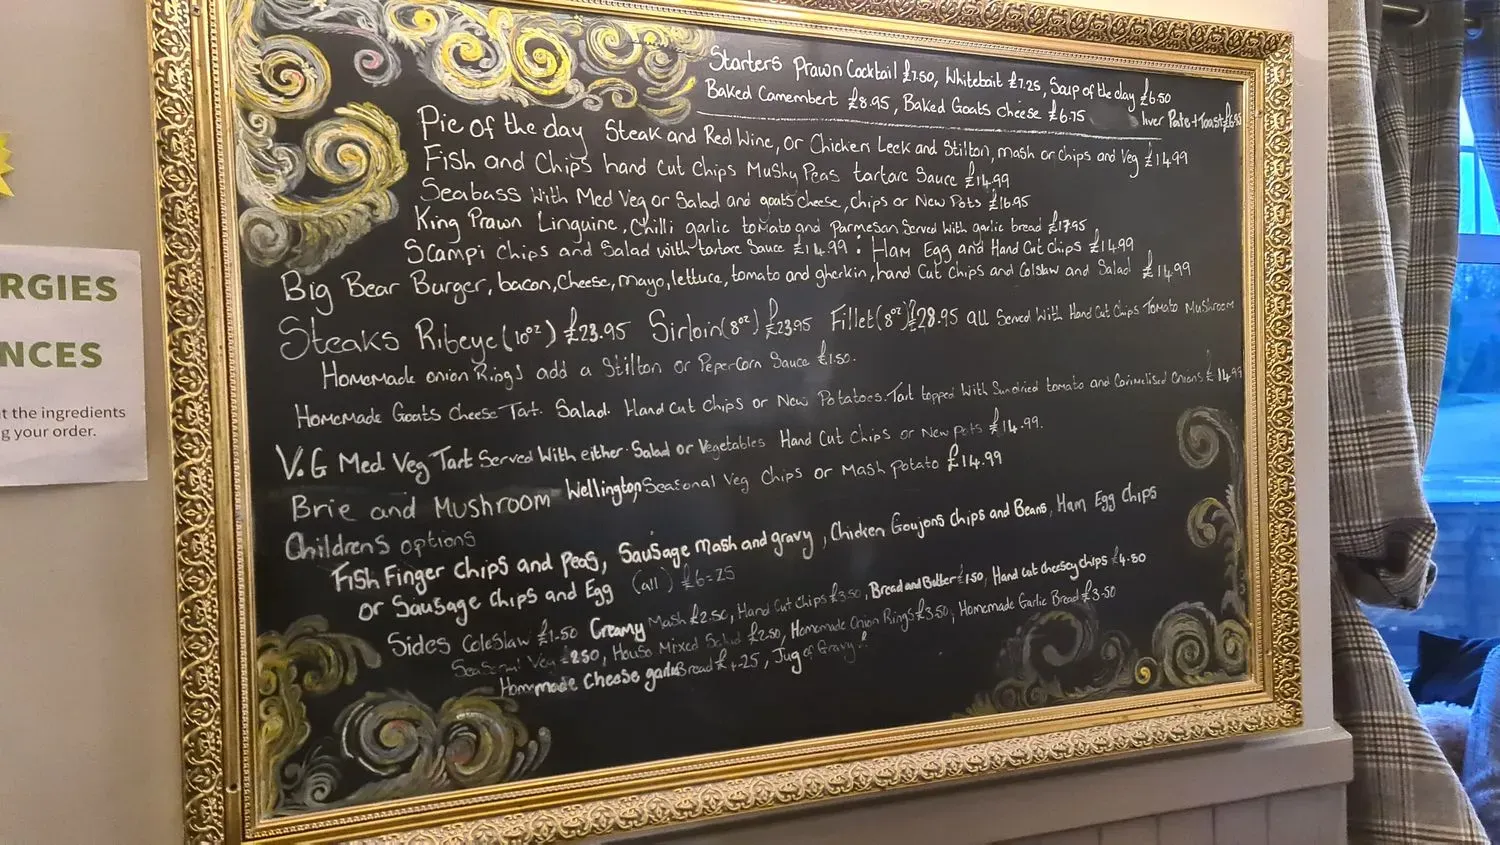 RGIES
NCES
t the ingredients
g your order.
Starters Prawn Cocktail £7.50, Whitebait £7.25, Soup of the day £6.50
Baked Camembert £8.95, Baked Goats cheese £6.75
liver Pate + Toast
Pie of the day Steak and Red Wine, or Chicken Leek and Stilton, mash or chips and Veg £14.99
Fish and Chips hand Cut Chips Mushy Peas tartare Sauce £14.99
Seabass With Med Veg or Salad and goats cheese, chips or New Pots £16.95
King Prawn Linguine, Chilli garlic tomato and Parmesan Served with garlic bread £17.95
Scampi Chips and Salad with tartare Sauce £14.99 : Ham Egg and Hand Cut chips £14.99
Big Bear Burger, bacon, cheese, mayo, lettuce, tomato and gherkin, hand Cut Chips and Colslaw and Salad £14.99
Steaks Ribeye (10oz) £23.95 Sirloin (8oz) £23.95 Fillet (8oz) £28.95 all Served With Hand Cut Chips Tomato Mushroom
Homemade onion Rings add a Stilton or Peper-Corn Sauce £1.50.
Homemade Goats Cheese Tart. Salad. Hand Cut Chips or New Potatoes. Tart topped With Sundried tomato and Carimelised Onions £14.99
V.G Med Veg Tart Served With either Salad or Vegetables Hand Cut Chips or New pots £14.99.
Brie and Mushroom Wellington Seasonal Veg Chips or Mash potato £14.99
Childrens options
Fish Finger chips and peas, Sausage Mash and gravy, Chicken Goujons chips and Beans, Ham Egg Chips
or Sausage chips and Egg (all) £6=25
Sides ColeSlaw £1.50 Creamy Mash £2.50, Hand Cut Chips £3.50, Bread and Butter £1.50, Hand cut cheesey chips £4.50
Veg £2.50, House Mixed Salad £2.50, Homemade Onion Rings £3.50, Homemade Garlic Bread £3.50
Homemade cheese garlic Bread, Jug of Gravy